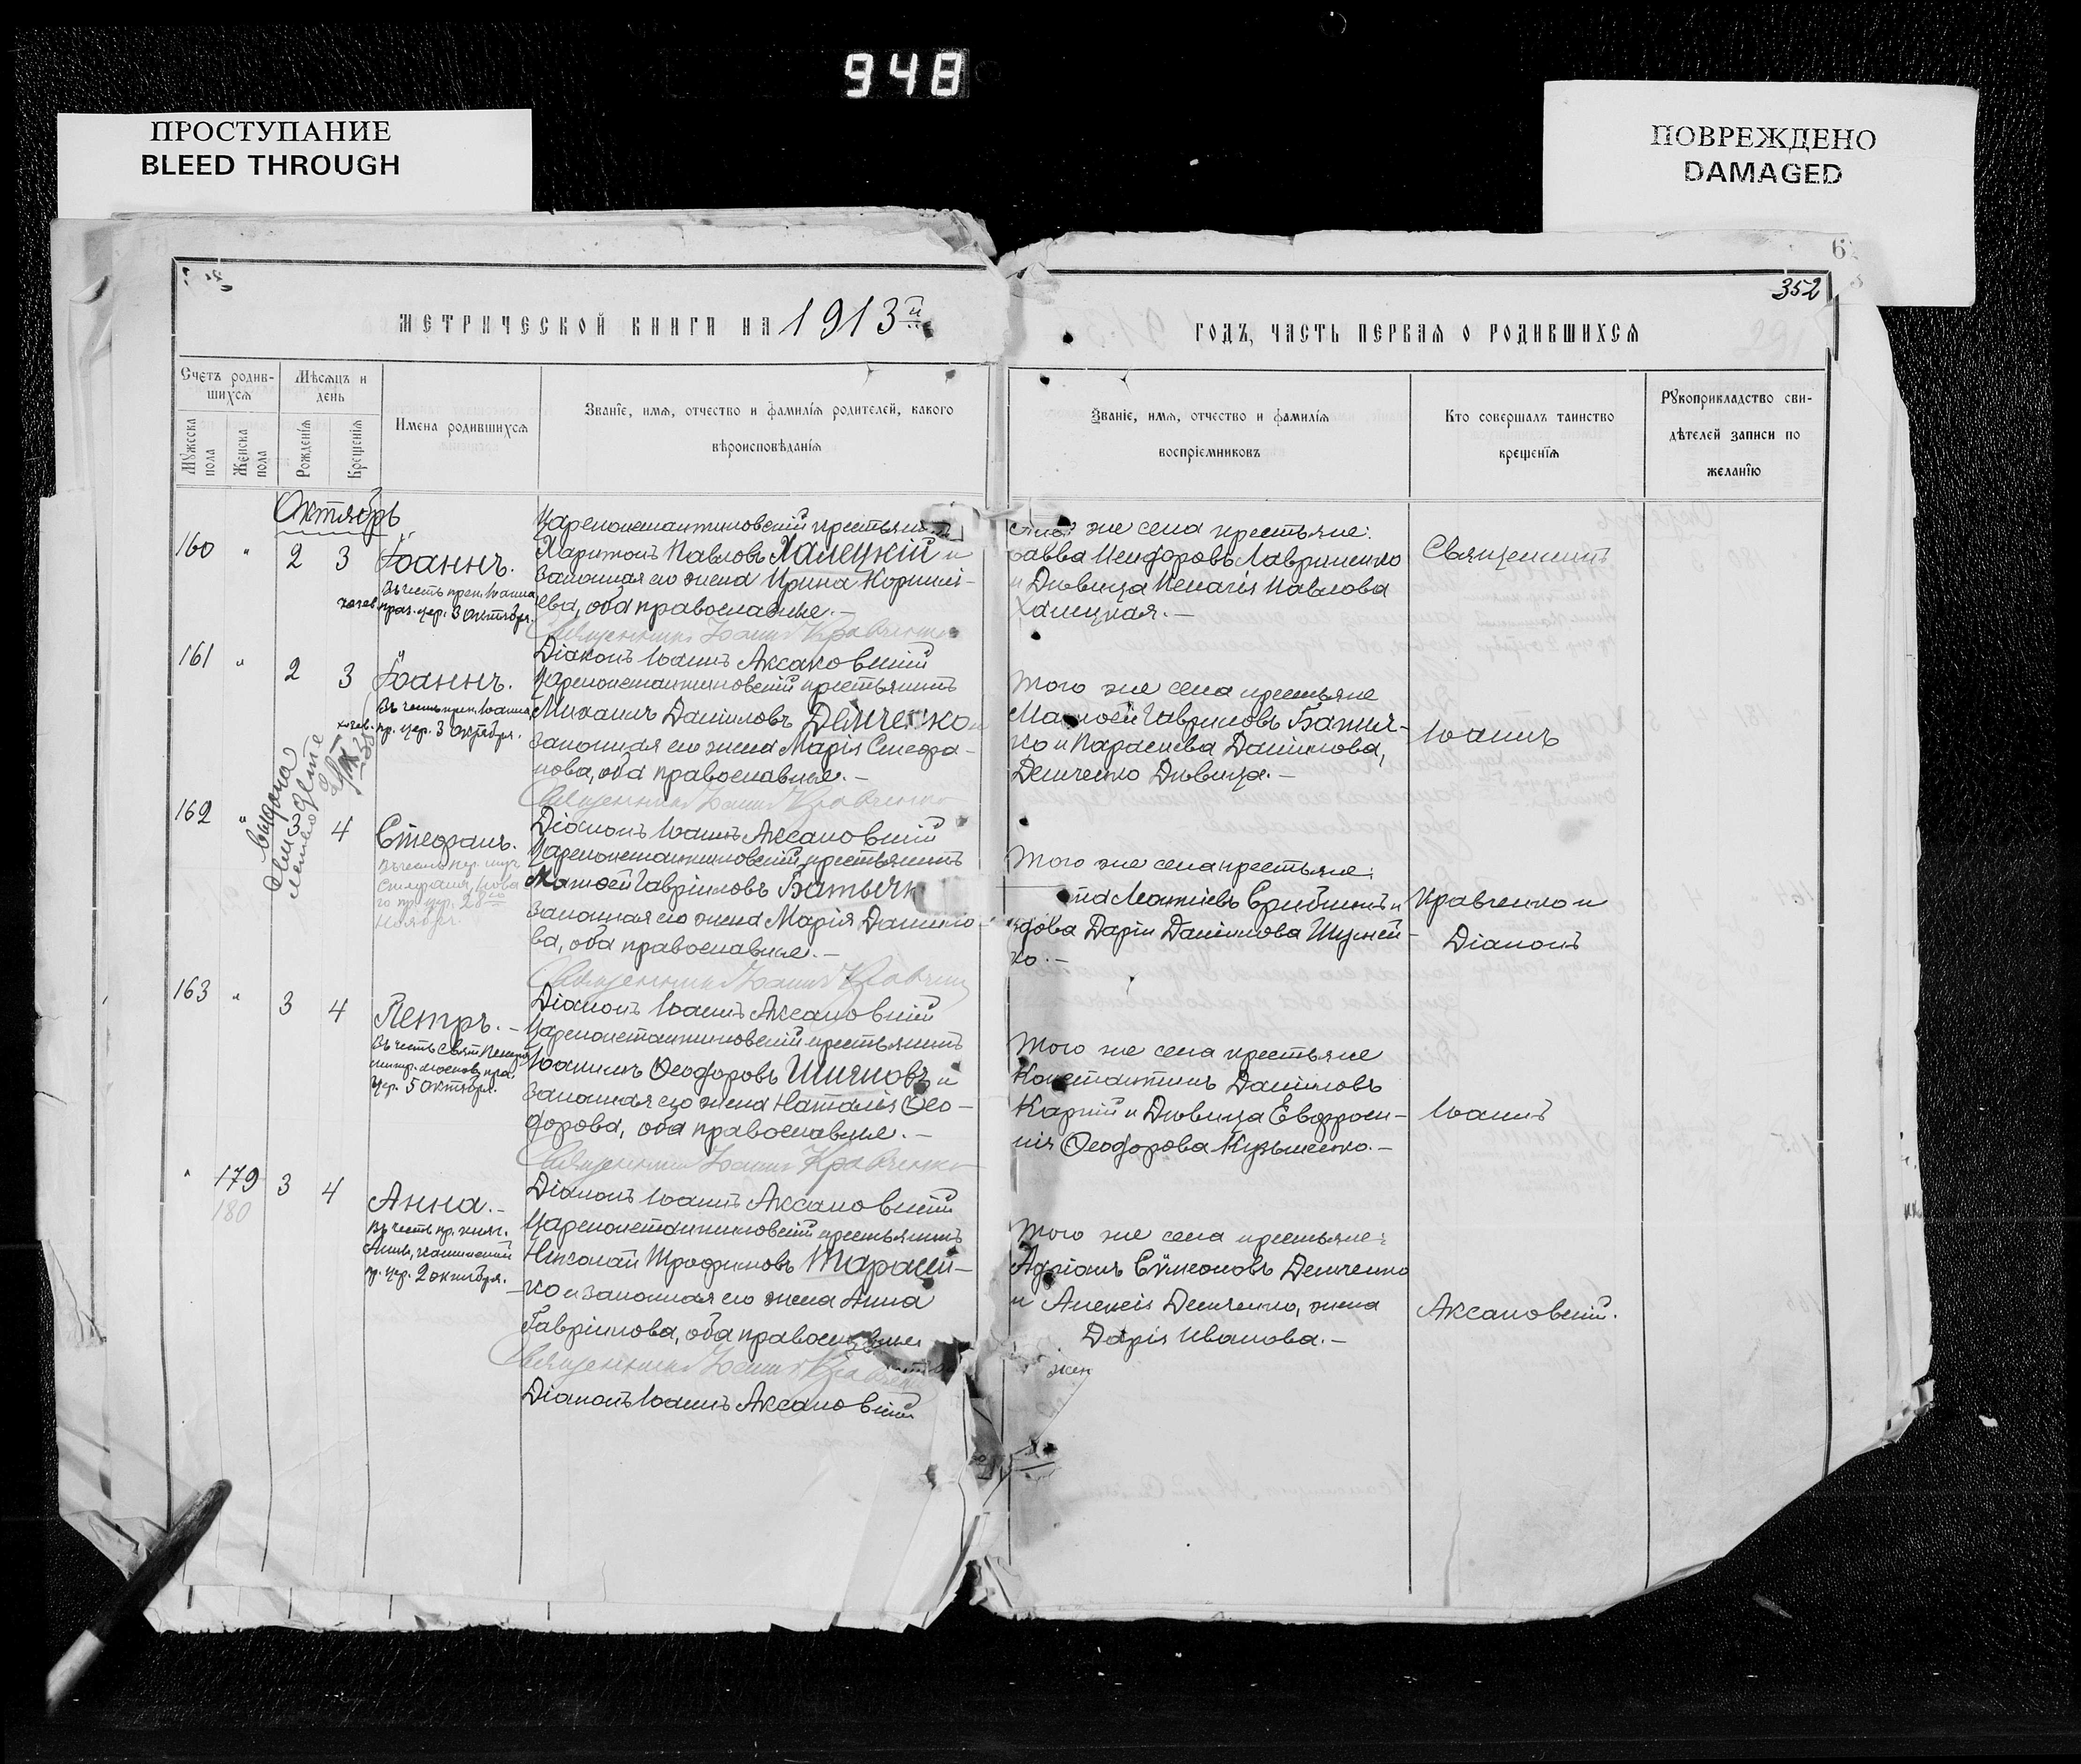 948
ПРОСТУПАНИЕ
BLEED THROUGH
ПОВРЕЖДЕНО
DAMAGED
352
МЕТРИЧЕСКОЙ КНИГИ НА 1913й
ГОДЪ, ЧАСТЬ ПЕРВАЯ О РОДИВШИХСЯ
Счетъ родив-
шихся
Мужеска пола
Женска пола
Мѣсяцъ и
день
Рожденія
Крещенія
Имена родившихся
Званіе, имя, отчество и фамилія родителей, какого
вѣроисповѣданія
Званіе, имя, отчество и фамилія
воспріемниковъ
Кто совершалъ таинство
крещенія
Рукоприкладство сви-
дѣтелей записи по
желанію
Октябрь
160 " 2 3 Іоаннъ.
Въ честь преп. Іоанна
хозев. праз. цер. 3 октября.
Цареконстантиновскій крестьянинъ
Харитонъ Павловъ Халецкій и
законная его жена Ирина Корнилі-
ева, оба православные.-
Священникъ Іоаннъ Кравченко
Діаконъ Іоаннъ Аксаковскій
же села крестьяне:
Савва Никифоровъ Лавриненко
и Дѣвица Пелагія Павлова
Халецкая.-
Священникъ
161 " 2 3 Іоаннъ.
Въ честь преп. Іоанна
хозев. пр. цер. 3 октября.
Цареконстантиновскій крестьянинъ
Михаилъ Даніиловъ Демченко и
законная его жена Марія Стефа-
нова, оба православные.-
Священникъ Іоаннъ Кравченко
Діаконъ Іоаннъ Аксаковскій
Того же села крестьяне
Матѳей Гавриловъ Батыч-
ко и Параскева Даніилова,
Демченко Дѣвица.-
Іоаннъ
162 " 3 4 Стефанъ.
Стефана, Нова
го пр. цер. 28го
Ноября.
Выдана
Цареконстантиновскій крестьянинъ
Матѳей Гавріиловъ Батычк
законная его жена Марія Даніило-
ва, оба православные.-
Священникъ Іоаннъ Кравченко
Діаконъ Іоаннъ Аксаковскій
Того же села крестьяне:
вдова Дарія Даніилова Шумей-
ко.-
Кравченко и
Діаконъ
163 " 3 4 Петръ.-
Въ честь Свят. Петра
митр. москов. праз.
цер. 5 октября.
Цареконстантиновскій крестьянинъ
Іоакимъ Ѳеодоровъ Шияновъ и
законная его жена Наталія Ѳео-
дорова, оба православные.-
Священникъ Іоаннъ Кравченко
Діаконъ Іоаннъ Аксаковскій
Того же села крестьяне
Константинъ Даніиловъ
Карпій и Дѣвица Евфроси-
нія Ѳеодорова Кузьменко.-
Іоаннъ
" 179 3 4 Анна.-
180
Въ честь пр. княг.
Анны, кашинской
п. цер. 2 октября.
Цареконстантиновскій крестьянинъ
Николай Трофимовъ Тарасен-
ко и законная его жена Анна
Гавріилова, оба православные
Священникъ Іоаннъ Кравченко
Діаконъ Іоаннъ Аксаковскій
Того же села крестьяне:
Адріанъ Сѵмеоновъ Демченко
и Алексія Демченко, жена
Дарія Иванова.-
Аксаковскій.
жен